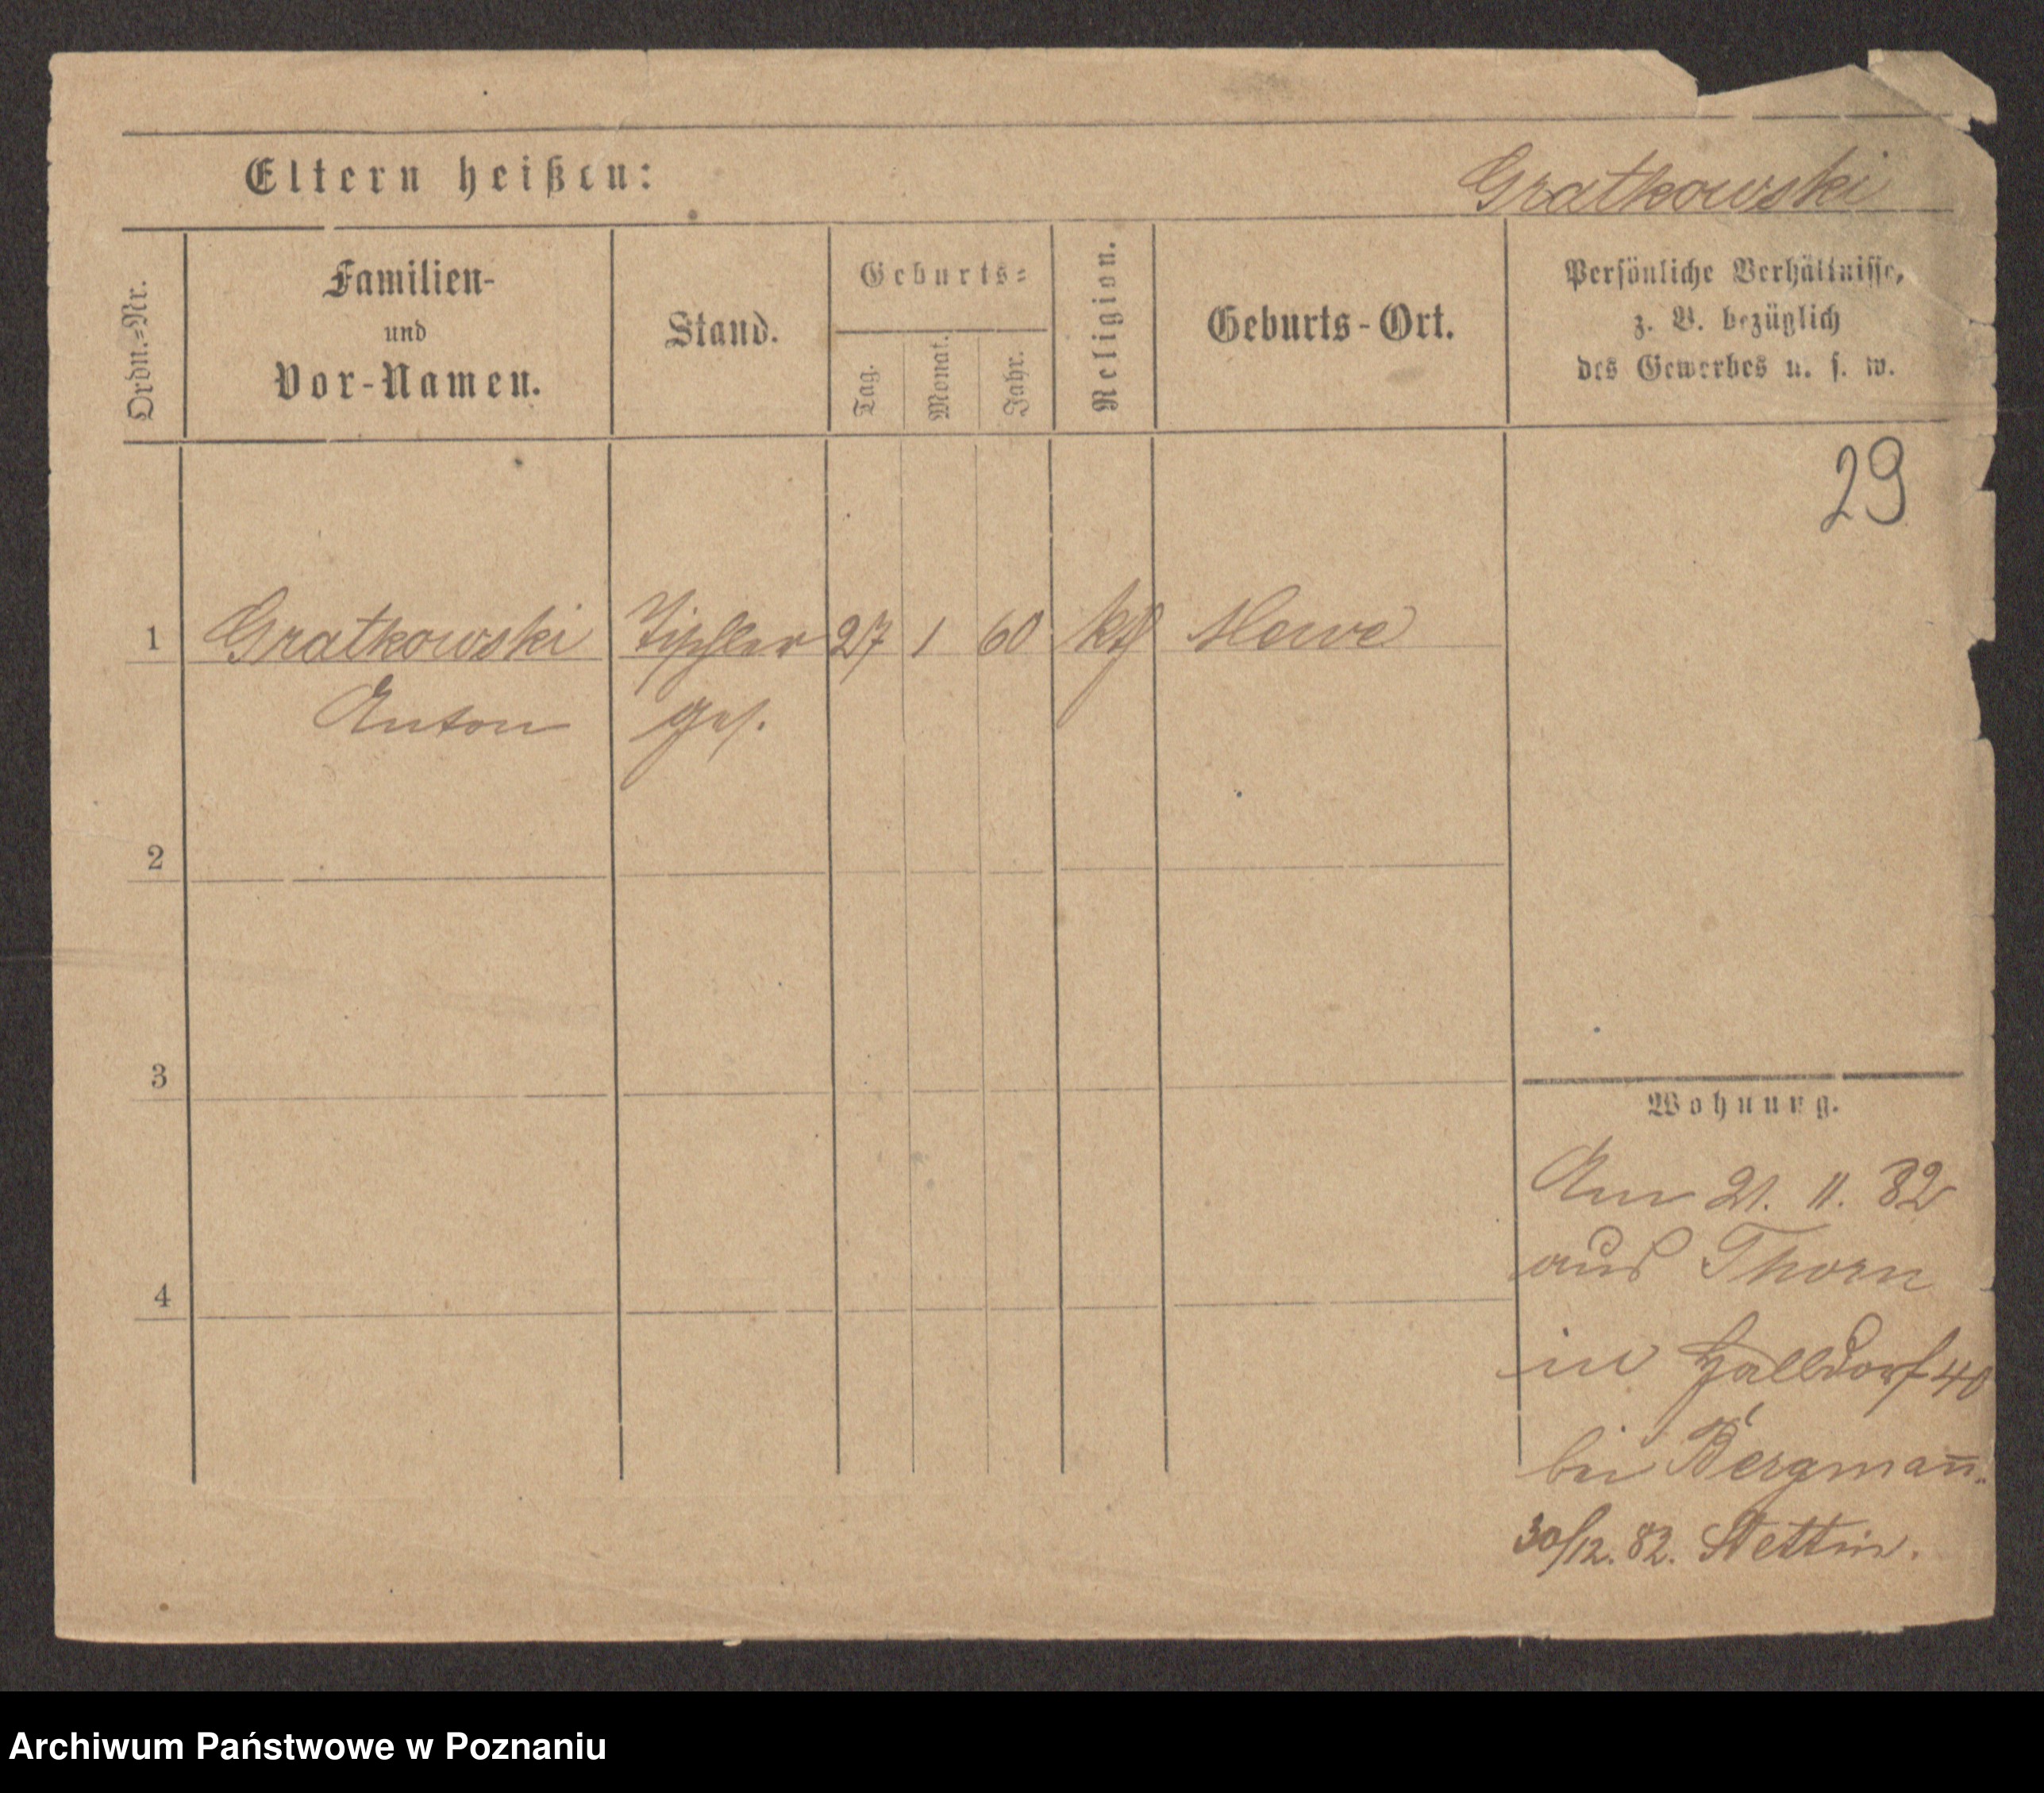 Eltern heißen:
Gratkowski
Ordn.-Nr.
Familien-
und
Vor-Namen.
Stand.
Geburts-
Tag.
Monat.
Jahr.
Religion.
Geburts-Ort.
Persönliche Verhältnisse,
z. B. bezüglich
des Gewerbes u. s. w.
29
1 Gratkowski Tischler 27 1 60 kth Mewe
Anton ges.
2
3
4
Wohnung.
Am 21. 11. 82
aus Thorn
in Halldorf 40
bei Bergmann.
30/12. 82. Stettin.
Archiwum Państwowe w Poznaniu